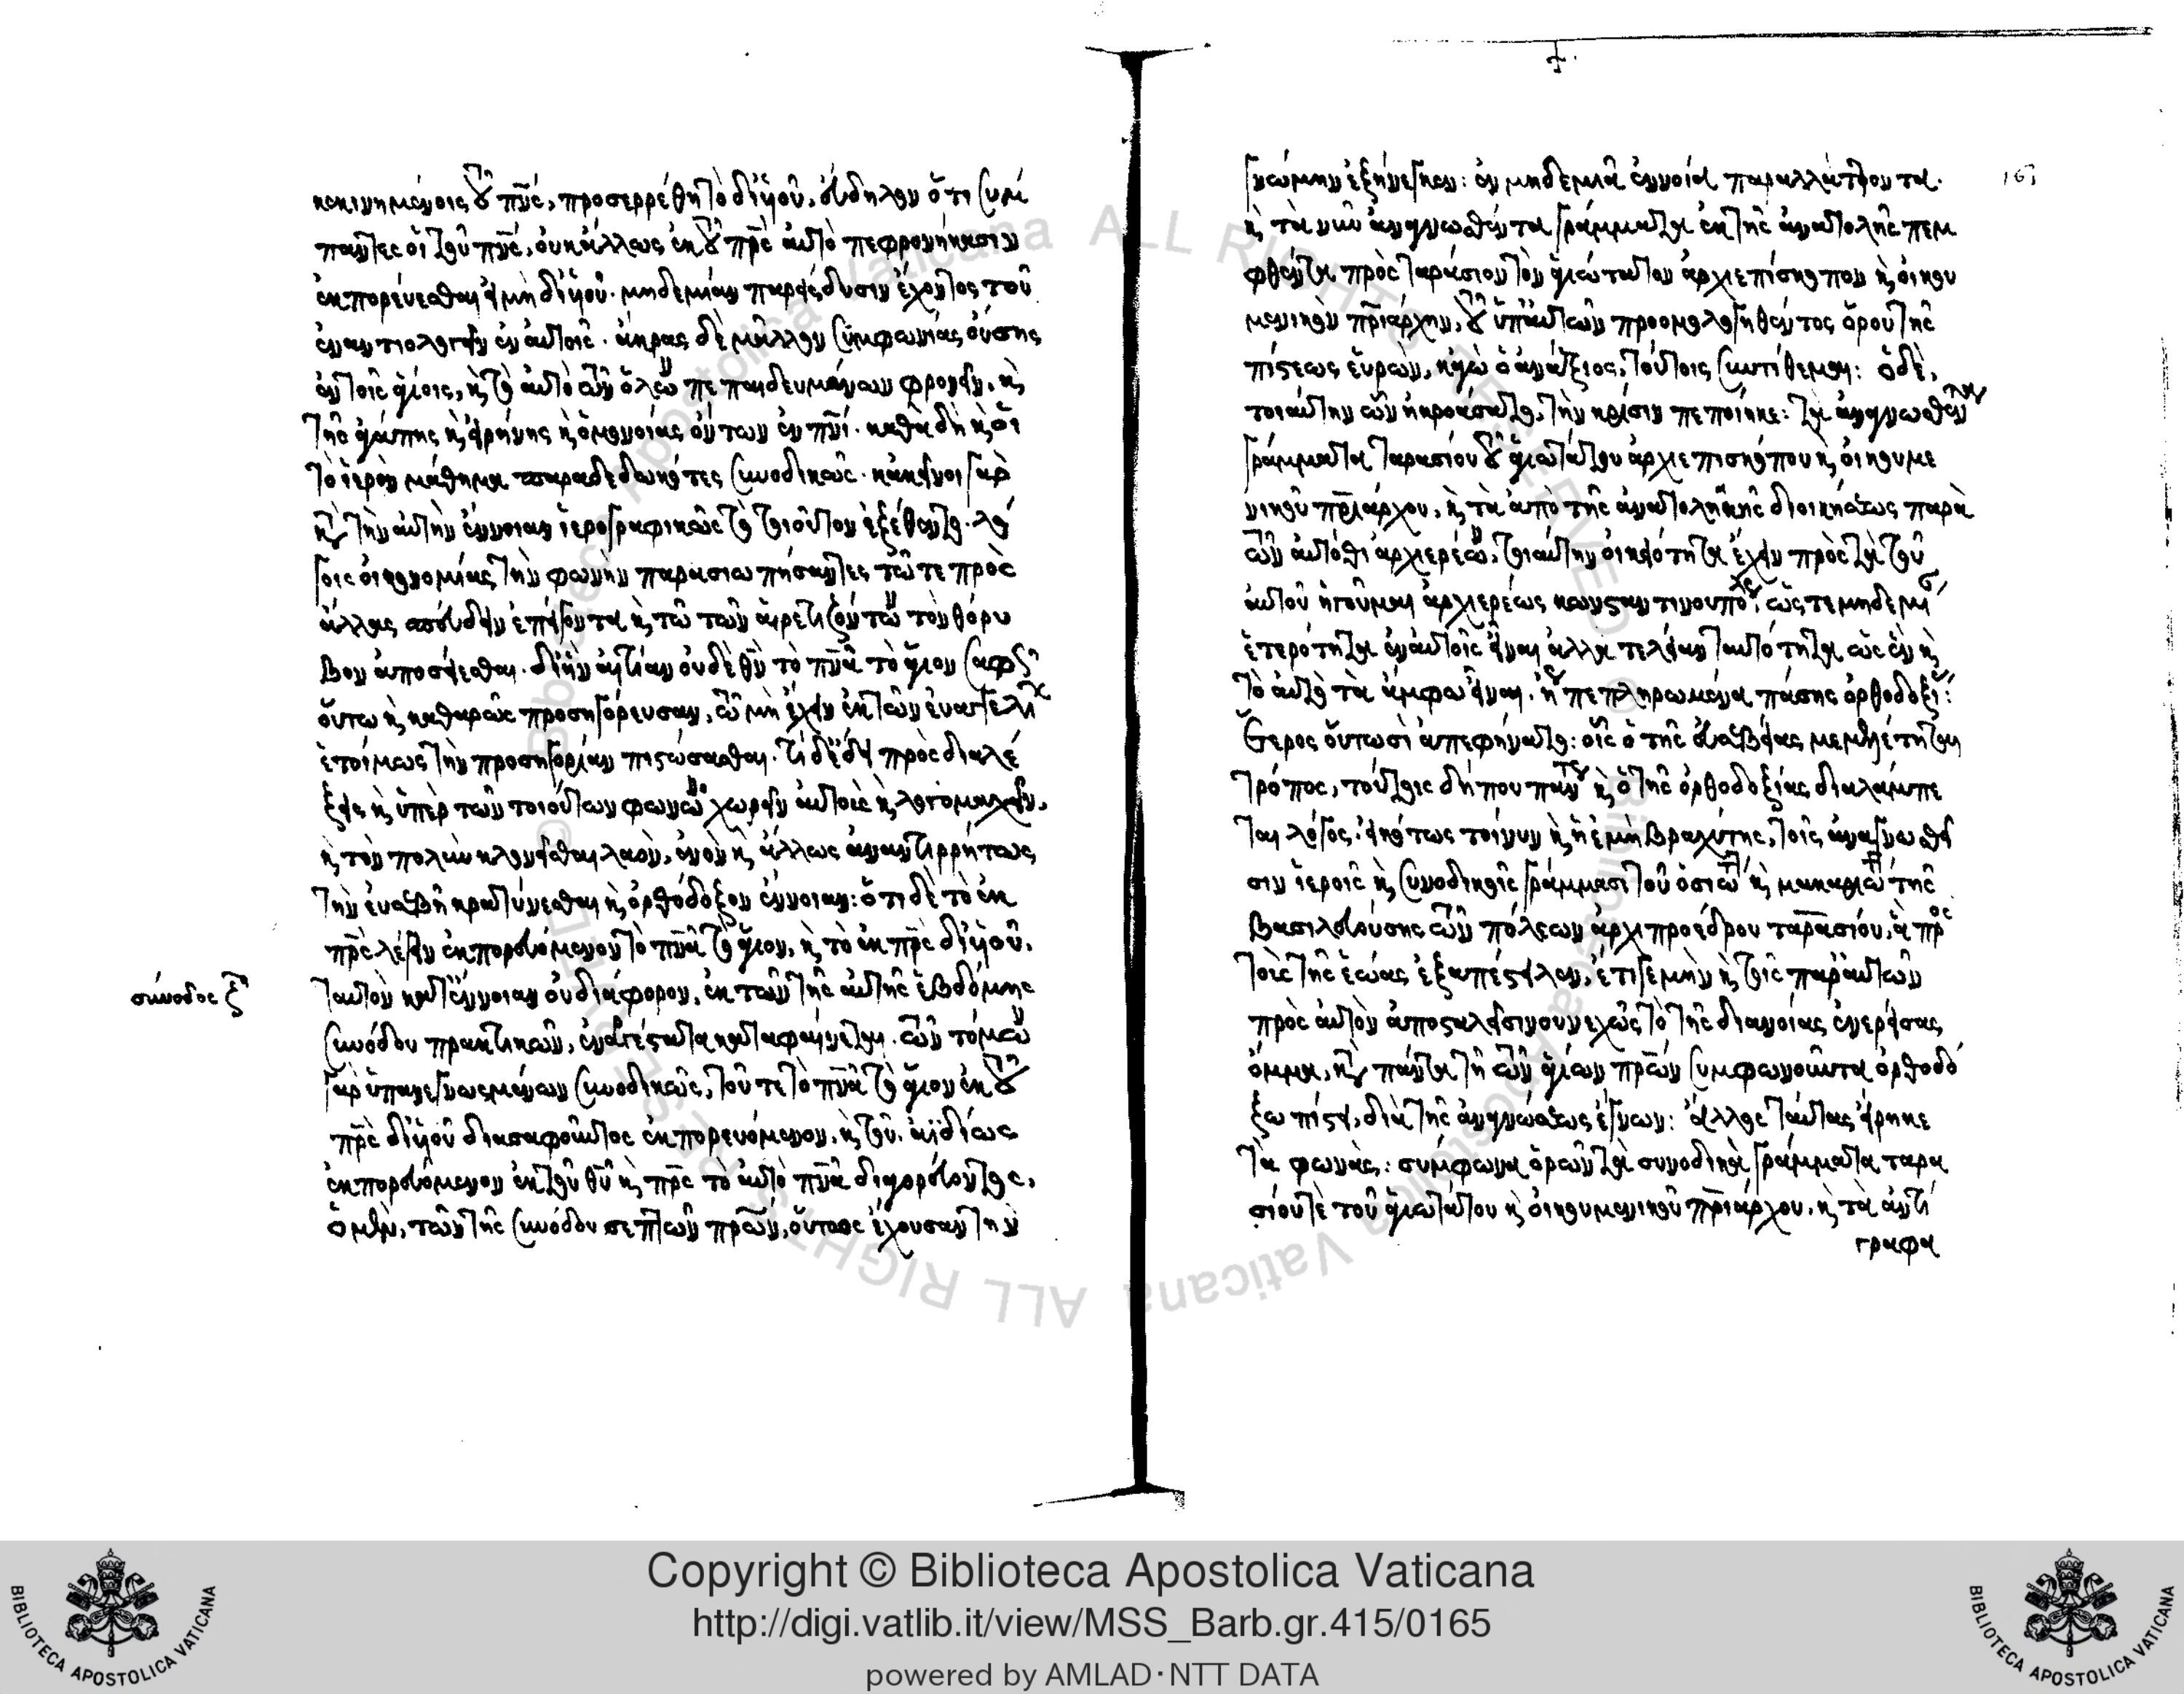 κεκινημένοις τοῦ πνς, προσερρέθη τὸ δι υἱοῦ, εὔδηλον ὅτι συμ
πάντες οἱ τοῦ πνς, οὐκ ἄλλως ἐκ τοῦ πρς αὐτὸ πεφρονήκασιν
ἐκπορεύεσθαι εἰ μὴ δι υἱοῦ. μηδεμίαν παρείσδυσιν ἔχοντος τοῦ
ἐναντιολογεῖν ἐν αὐτοῖς. ἄκρας δὲ μᾶλλον συμφωνίας οὔσης
ἐν τοῖς ἁγίοις, καὶ τὸ αὐτὸ τῶν ὅλων πεπαιδευμένων φρονεῖν, καὶ
τῆς ἀγάπης καὶ εἰρήνης καὶ ὁμονοίας ὄντων ἐν πνι. καθὰ δὴ καὶ οἱ
τὸ ἱερὸν μάθημα παραδεδωκότες συνοδικῶς. κἀκεῖνοι γὰρ
κατὰ τὴν αὐτὴν ἔννοιαν ἱερογραφικῶς τὸ τοιοῦτον ἐξέθεντο. λό
γοις οἰκονομίας τὴν φωνὴν παρασιωπήσαντες τῶ τε πρὸς
ἄλλας σπεύδειν ἐπείγοντα καὶ τῶ τῶν αἱρετιζόντων τὸν θόρυ
βον ἀποσείεσθαι. δι ἣν αἰτίαν οὐδὲ θν τὸ πνα τὸ ἅγιον σαφῶς
οὕτω καὶ καθαρῶς προσηγόρευσαν, τῶ μὴ ἔχειν ἐκ τῶν εὐαγγελικ
ἑτοίμως τὴν προσηγορίαν πιστώσασθαι. τί δὲ ἔδει πρὸς διαλέ
ξεις καὶ ὑπὲρ τῶν τοιούτων φωνῶν χωρεῖν αὐτοὺς καὶ λογομαχεῖν,
καὶ τὸν πολὺν κλονεῖσθαι λαὸν, ἐνὸν καὶ ἄλλως ἀναντιρρήτως
τὴν εὐσεβῆ κρατύνεσθαι καὶ ὀρθόδοξον ἔννοιαν: ὅτι δὲ τὸ ἐκ
πρς λέγειν ἐκπορευόμενον τὸ πνα τὸ ἅγιον, καὶ τὸ ἐκ πρς δι υἱοῦ,
σύνοδος ζ
ταυτὸν κατ ἔννοιαν οὐ διάφορον, ἐκ τῶν τῆς αὐτῆς ἑβδόμης
συνόδου πρακτικῶν, ἐναργέστατα καταφαίνεται. τῶν τόμων
γὰρ ὑπανεγνωσμένων συνοδικῶς, τοῦ τε τὸ πνα τὸ ἅγιον ἐκ τοῦ
πρς δι υἱοῦ διασαφοῦντος ἐκπορευόμενον, καὶ τοῦ ἀϊδίως
ἐκπορευόμενον ἐκ τοῦ θυ καὶ πρς τὸ αὐτὸ πνα διαγορεύοντος,
ὁ μὲν, τῶν τῆς συνόδου σεπτῶν πρων, οὕτως ἔχουσαν τὴν
γνώμην ἐξήνεγκεν: ἐν μηδεμιᾶ ἐννοία παραλλάττοντα
καὶ τὰ νῦν ἀναγνωσθέντα γράμματα ἐκ τῆς ἀνατολῆς πεμ
φθέντα πρὸς ταράσιον τὸν ἁγιώτατον ἀρχιεπίσκοπον καὶ οἰκου
μενικὸν πριάρχην, τοῦ ὑπ αὐτῶν προομολογηθέντος ὅρου τῆς
πίστεως εὑρὼν, κἀγὼ ὁ ἀνάξιος, τούτοις συντίθεμαι: ὁ δὲ,
τοιαύτην τῶν ἠκροασατο τὴν κρίσιν πεποίηκε: τὰ ἀναγνωσθέντα
γράμματα ταρασίου τοῦ ἁγιωτάτου ἀρχιεπισκόπου καὶ οἰκουμε
νικοῦ πριάρχου, καὶ τὰ ἀπὸ τῆς ἀνατολικῆς διοικήσεως παρὰ
τῶν αὐτόθι ἀρχιερέων, τοιαύτην οἰκειότητα ἔχειν πρὸς τὰ τοῦ
αὐτοῦ ἡγοῦμαι ἀρχιερέως κωνσταντινουπόλεως, ὥστε μηδεμί
ἑτερότητα ἐν αὐτοῖς εἶναι ἀλλὰ τελείαν ταυτότητα ὡς ἓν καὶ
τὸ αὐτὸ τὰ ἄμφω εἶναι. καὶ πεπληρωμένα πάσης ὀρθοδοξί:
Ἕτερος οὑτωσὶ ἀπεφήνατο: οἷς ὁ τῆς εὐσεβείας μεμελέτηται
τρόπος, τούτοις δήπου πάντως καὶ ὁ τῆς ὀρθοδοξίας διαλάμπε
ται λόγος. εἰκότως τοίνυν καὶ ἡ ἐμὴ βραχύτης, τοῖς ἀναγνωσθεῖ
σιν ἱεροῖς καὶ συνοδικοῖς γράμμασι τοῦ ὁσιωτ καὶ μακαριωτ τῆς
βασιλευούσης τῶν πόλεων ἀρχιπροέδρου ταρασίου, ἃ πρὸς
τοὺς τῆς ἑώας ἐξαπέστειλεν, ἔτι γε μὴν καὶ τοῖς παρ αὐτῶν
πρὸς αὐτὸν ἀποσταλεῖσι συνεχῶς τὸ τῆς διανοίας ἐνερείσας
ὄμμα, κατὰ πάντα τῆ τῶν ἁγίων πρων συμφωνοῦντα ὀρθοδό
ξω πίστει, διὰ τῆς ἀναγνώσεως ἔγνων: ἄλλος ταύτας εἴρηκε
τὰ φωνάς: σύμφωνα ὁρῶν τὰ συνοδικὰ γράμματα ταρα
σίου τε τοῦ ἁγιωτάτου καὶ οἰκουμενικοῦ πριάρχου, καὶ τὰ ἀντί
γραφα
Copyright © Biblioteca Apostolica Vaticana
http://digi.vatlib.it/view/MSS_Barb.gr.415/0165
powered by AMLAD·NTT DATA
BIBLIOTECA APOSTOLICA VATICANA
BIBLIOTECA APOSTOLICA VATICANA